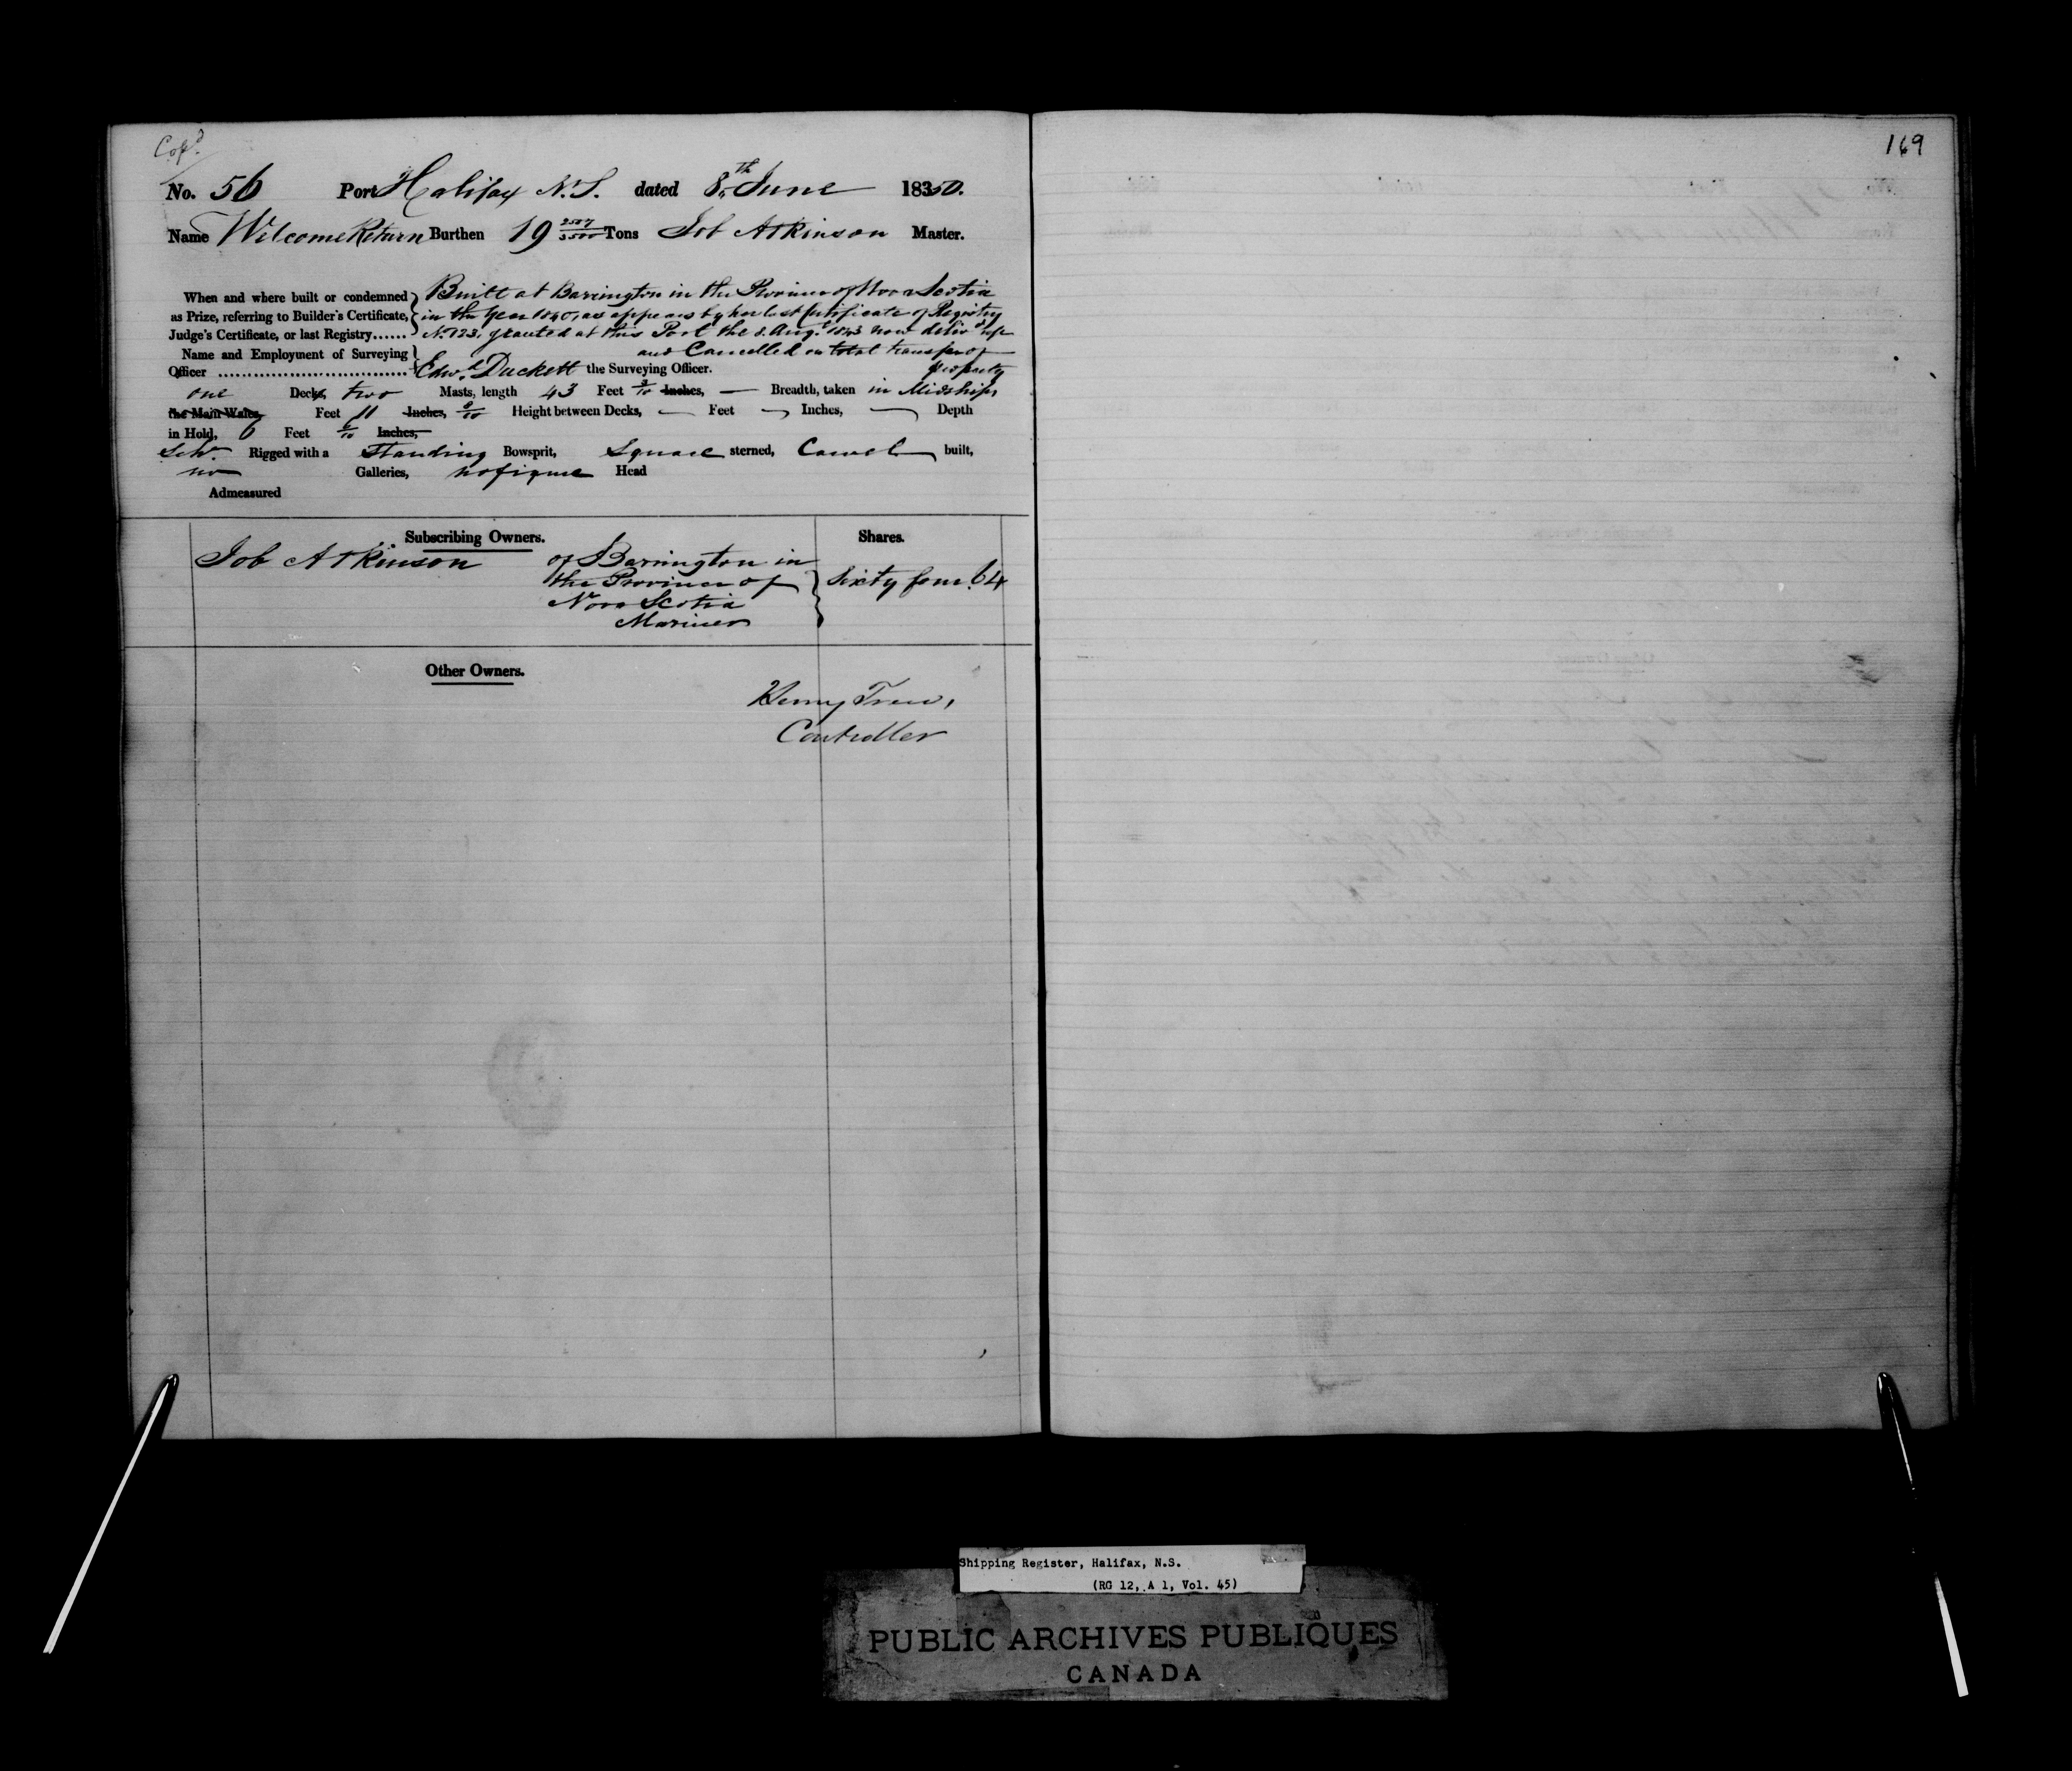 Cop^d
169
No. 56 Port Halifax N.S. dated 8th June 1850.
Name Welcome Return Burthen 19 2507/3500 Tons Job Atkinson Master.
When and where built or condemned } Built at Barrington in the Province of Nova Scotia
as Prize, referring to Builder's Certificate, { in the Year 1840, as appears by her last Certificate of Registry
Judge's Certificate, or last Registry...... } No. 123, granted at this Port the 8. Augt. 1843 now deliv^d up
Name and Employment of Surveying } and Cancelled on total transfer of
Officer ................................ } Edw^d Duckett the Surveying Officer. property
one Decks, two Masts, length 43 Feet /10 Inches, — Breadth, taken in Midships
the Main Wales, Feet 11 Inches, 8/10 Height between Decks, — Feet — Inches, — Depth
in Hold, 6 Feet /10 Inches,
Schr. Rigged with a Standing Bowsprit, Square sterned, Carvel built,
no Galleries, no figure Head
Admeasured
Subscribing Owners. Shares.
Job Atkinson of Barrington in
the Province of } Sixty four. 64
Nova Scotia
Mariner
Other Owners.
Henry Trew,
Controller
Shipping Register, Halifax, N.S.
(RG 12, A 1, Vol. 45)
PUBLIC ARCHIVES PUBLIQUES
CANADA